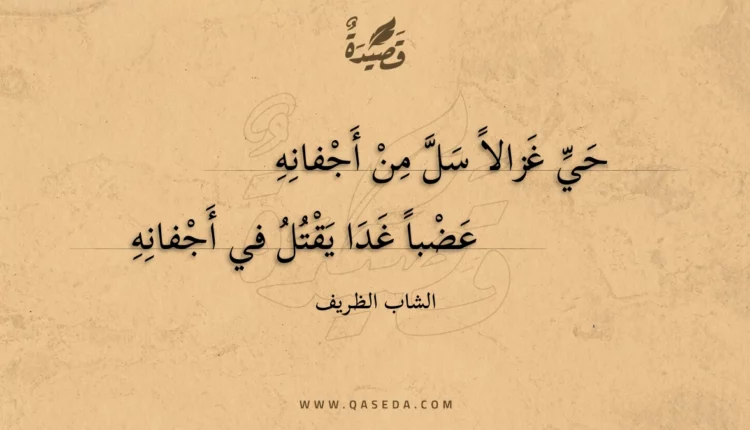 قَصِيدَةٌ
حَيِّ غَزالاً سَلَّ مِنْ أَجْفانِهِ
عَضْباً غَدَا يَقْتُلُ في أَجْفانِهِ
الشاب الظريف
WWW.QASEDA.COM